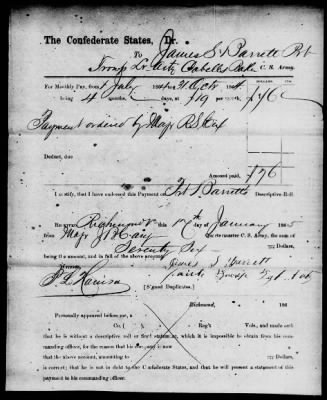 The Confederate States, Dr.
To James S. Barrett Pvt
C. S. Army.
DOLLARS. CTS.
For Monthly Pay, from 1 July 1864 to 31 Octr 1864
being 4 months, days, at $19 per month, $76
Payment ordered by Majr
Deduct, due
Amount paid, $76
I certify, that I have endorsed this Payment on Barrett's Descriptive Roll.
Received, Richmond 12th of January 1865
from Majr Quartermaster C. S. Army, the sum of
Seventy Six Dollars,
being the amount, and in full of the above account.
Witness, James S. Barrett
[Signed Duplicates.]
Richmond, 186
Personally appeared before me, a
Co. ( ), Reg't Vols., and made oath
that he is without a descriptive roll or final statement, which it is impossible to obtain from his commanding officer, for the reason that he and now
that the above account, amounting to Dollars,
is correct; that he is not in debt to the Confederate States, and that he will present a statement of this
payment to his commanding officer.